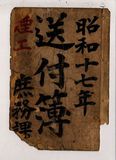 昭和十七年
送付簿
理工
庶務課